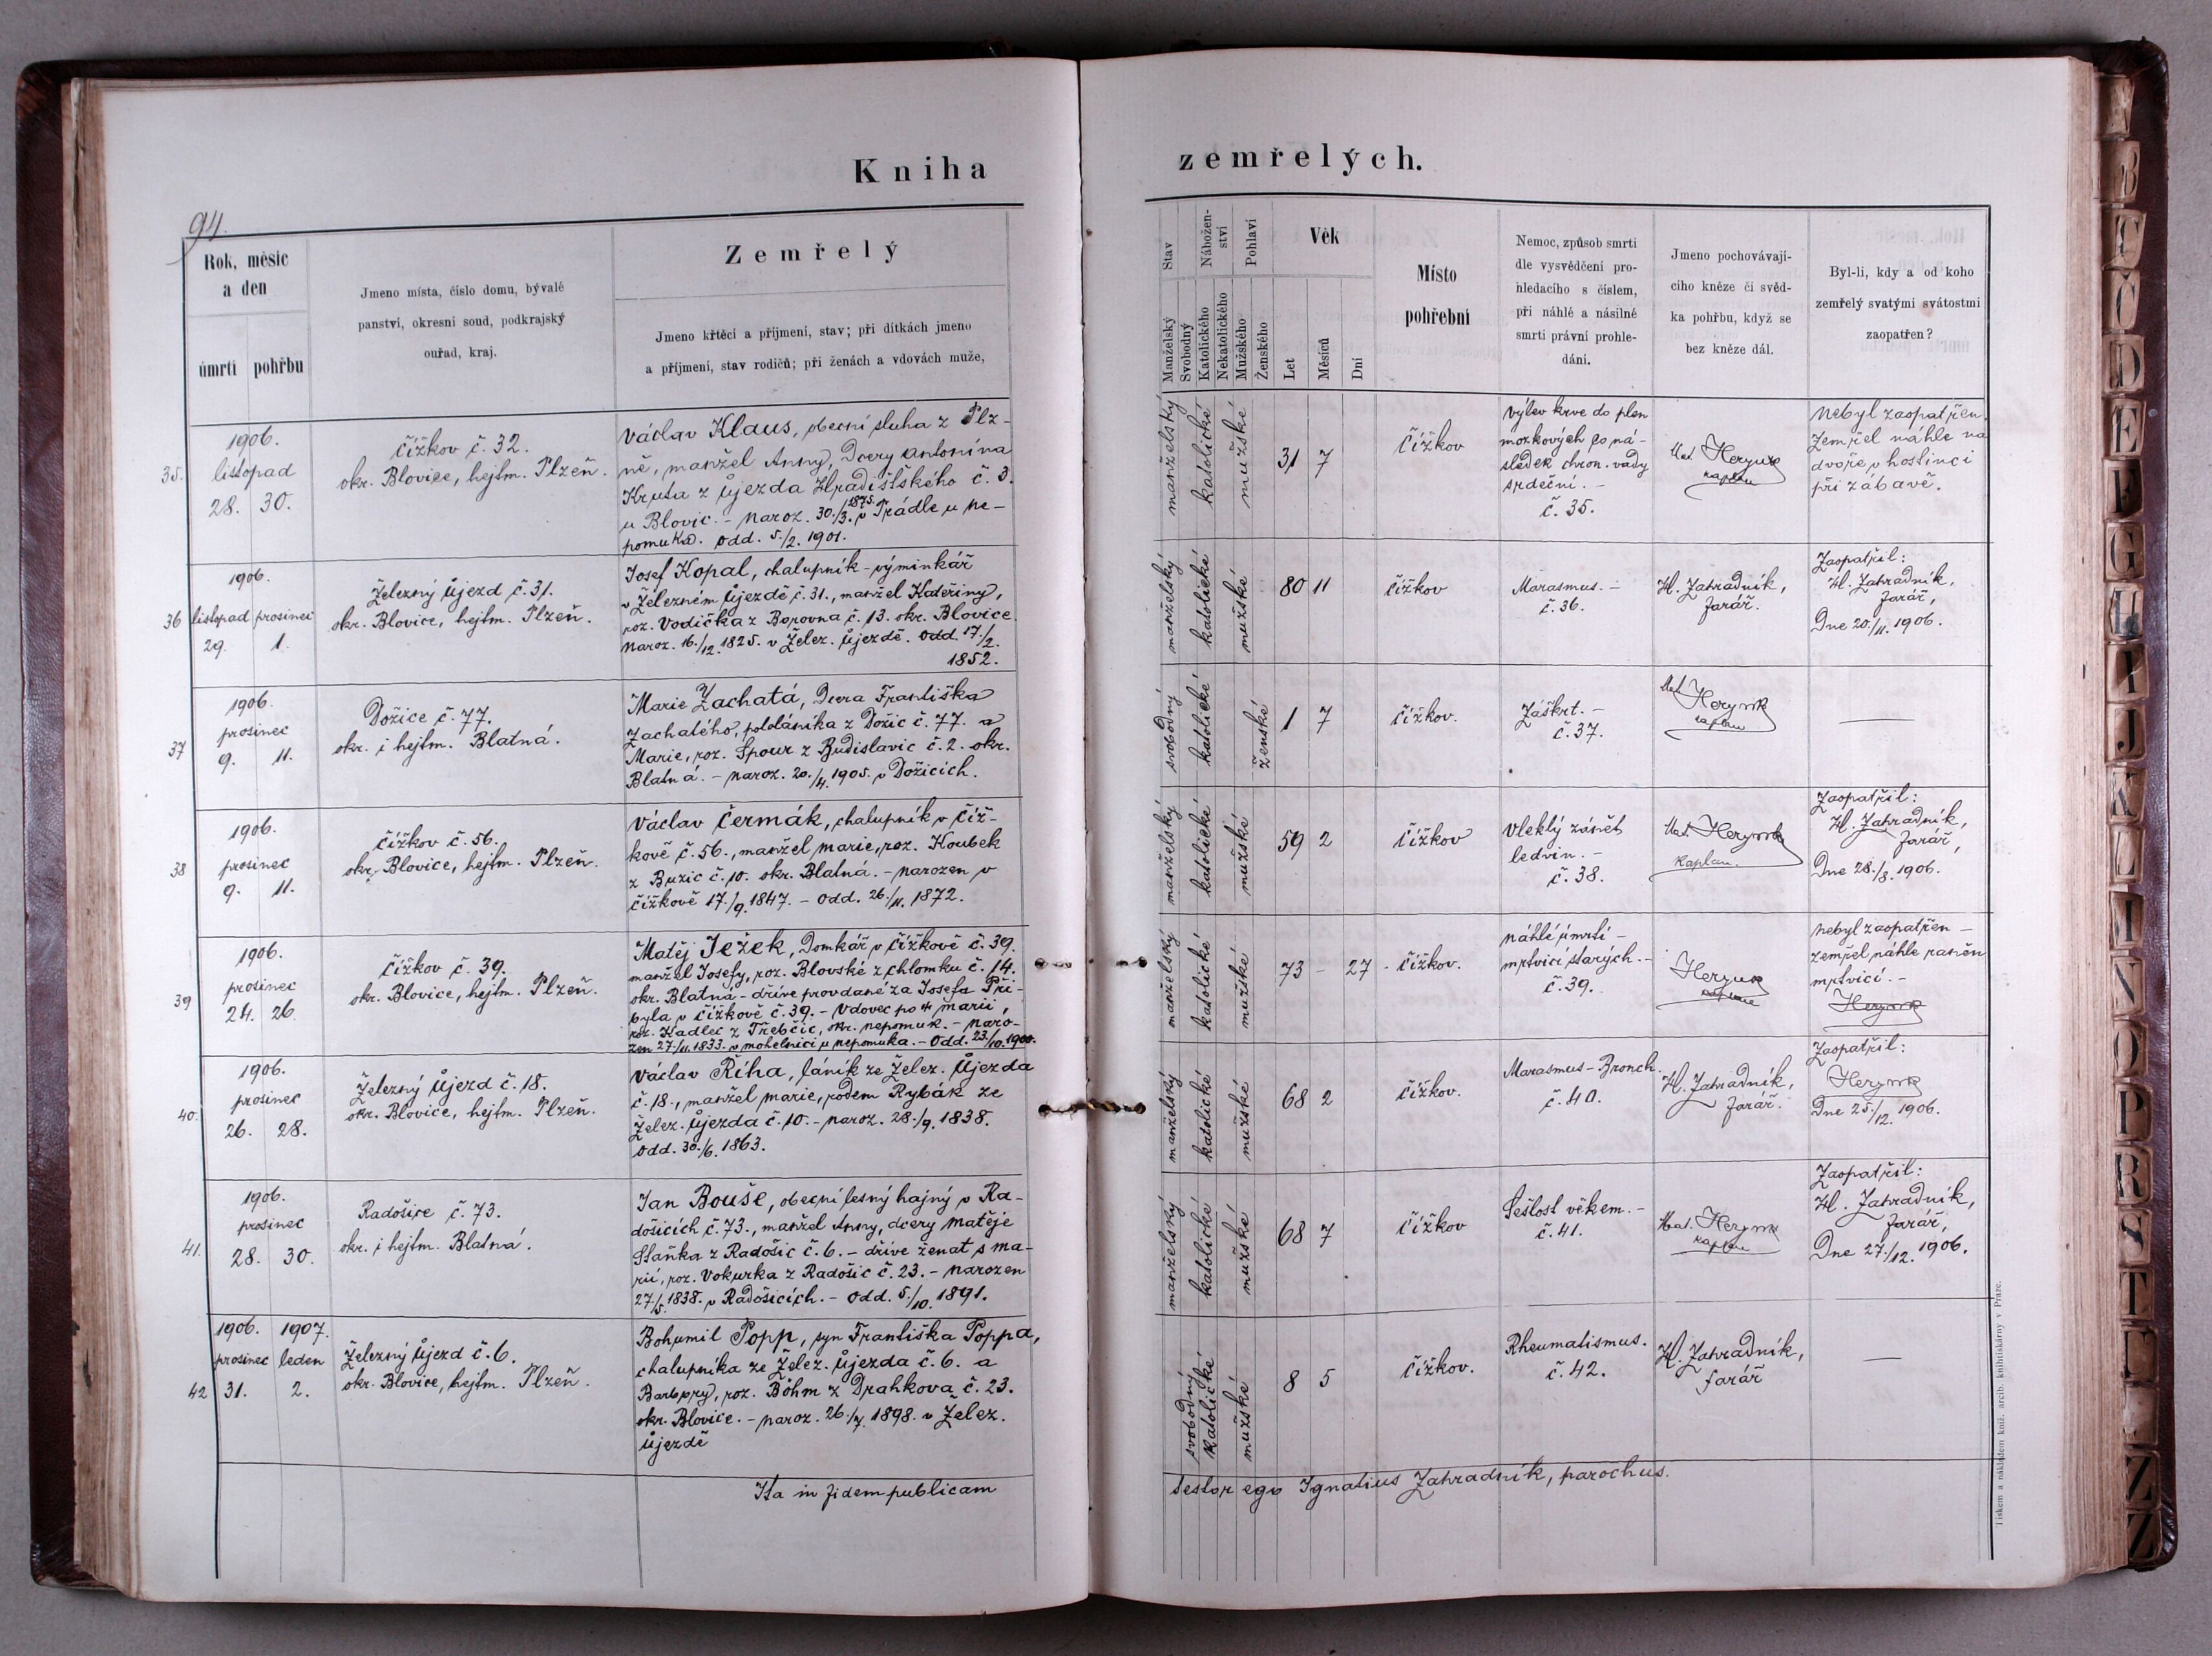 Kniha
zemřelých.
94.
Rok, měsíc
a den
úmrtí
pohřbu
Jmeno místa, číslo domu, bývalé
panství, okresní soud, podkrajský
ouřad, kraj.
Zemřelý
Jmeno křtěcí a příjmení, stav; při dítkách jmeno
a příjmení, stav rodičů; při ženách a vdovách muže,
Stav
Manželský
Svobodný
Nábožen-
ství
Katolického
Nekatolického
Pohlaví
Mužského
Ženského
Věk
Let
Měsíců
Dní
Místo
pohřební
Nemoc, způsob smrti
dle vysvědčení pro-
hledacího s číslem,
při náhlé a násilné
smrti právní prohle-
dání.
Jmeno pochovávají-
cího kněze či svěd-
ka pohřbu, když se
bez kněze dál.
Byl-li, kdy a od koho
zemřelý svatými svátostmi
zaopatřen?
35.
1906.
listopad
28. 30.
Čížkov č. 32.
okr. Blovice, hejtm. Plzeň.
Václav Klaus, obecní sluha z Plz-
ně, manžel Anny, dcery Antonína
Kruta z Újezda Hradišťského č. 3.
u Blovic. - naroz. 30./3. 1875. v Prádle u Ne-
pomuka. odd. 5./2. 1901.
manželský
katolické
mužské
31 7
Čížkov
Výlev krve do plen
mozkových co ná-
sledek chron. vady
srdeční. -
č. 35.
Mat. Herynk
kaplan
Nebyl zaopatřen.
Zemřel náhle na
dvoře v hostinci
při zábavě.
36
1906.
listopad prosinec
29. 1.
Železný Újezd č. 31.
okr. Blovice, hejtm. Plzeň.
Josef Kopal, chalupník - výminkář
v Železném Újezdě č. 31., manžel Kateřiny,
roz. Vodička z Borovna č. 13. okr. Blovice.
naroz. 16./12. 1825. v Želez. Újezdě. odd. 17./2.
1852.
manželský
katolické
mužské
80 11
Čížkov
Marasmus. -
č. 36.
H. Zahradník,
farář.
Zaopatřil:
H. Zahradník,
farář,
Dne 20./11. 1906.
37
1906.
prosinec
9. 11.
Dožice č. 77.
okr. i hejtm. Blatná.
Marie Zachatá, dcera Františka
Zachatého, pololáníka z Dožic č. 77. a
Marie, roz. Spour z Budislavic č. 2. okr.
Blatná. - naroz. 20./4. 1905. v Dožicích.
svobodný
katolické
ženské
1 7
Čížkov.
Záškrt. -
č. 37.
Mat. Herynk
kaplan
38
1906.
prosinec
9. 11.
Čížkov č. 56.
okr. Blovice, hejtm. Plzeň.
Václav Čermák, chalupník v Číž-
kově č. 56., manžel Marie, roz. Koubek
z Buzic č. 10. okr. Blatná. - narozen v
Čížkově 17./9. 1847. - odd. 26./11. 1872.
manželský
katolické
mužské
59 2
Čížkov
Vleklý zánět
ledvin. -
č. 38.
Mat. Herynk
kaplan.
Zaopatřil:
H. Zahradník,
farář,
Dne 28./8. 1906.
39
1906.
prosinec
24. 26.
Čížkov č. 39.
okr. Blovice, hejtm. Plzeň.
Matěj Ježek, domkář v Čížkově č. 39.
manžel Josefy, roz. Blovské z Chlomku č. 14.
okr. Blatna - dříve provdané za Josefa Při-
byla v Čížkově č. 39. - Vdovec po Marii,
roz. Kadlec z Třebčic, okr. Nepomuk. - naro-
zen 27./11. 1833. v Mohelnici u Nepomuka. - odd. 23./10. 1900.
manželský
katolické
mužské
73 - 27
Čížkov.
náhlé úmrtí -
mrtvicí starých. -
č. 39.
Herynk
kaplan
nebyl zaopatřen -
zemřel náhle raněn
mrtvicí. -
Herynk
40.
1906.
prosinec
26. 28.
Železný Újezd č. 18.
okr. Blovice, hejtm. Plzeň.
Václav Říha, láník ze Želez. Újezda
č. 18., manžel Marie, rodem Rybák ze
Želez. Újezda č. 10. - naroz. 28./9. 1838.
odd. 30./6. 1863.
manželský
katolické
mužské
68 2
Čížkov.
Marasmus - Bronch.
č. 40.
H. Zahradník,
farář.
Zaopatřil:
Herynk
Dne 25./12. 1906.
41.
1906.
prosinec
28. 30.
Radošice č. 73.
okr. i hejtm. Blatná.
Jan Bouše, obecní lesný hajný v Ra-
došicích č. 73., manžel Anny, dcery Matěje
Staňka z Radošic č. 6. - dříve ženat s Ma-
rií, roz. Vokurka z Radošic č. 23. - narozen
27./5. 1838. v Radošicích. - odd. 5./10. 1891.
manželský
katolické
mužské
68 7
Čížkov
Sešlost věkem. -
č. 41.
Mat. Herynk
kaplan
Zaopatřil:
H. Zahradník,
farář,
Dne 27./12. 1906.
42
1906. 1907.
prosinec leden
31. 2.
Železný Újezd č. 6.
okr. Blovice, hejtm. Plzeň.
Bohumil Popp, syn Františka Poppa,
chalupníka ze Želez. Újezda č. 6. a
Barbory, roz. Böhm z Drahkova č. 23.
okr. Blovice. - naroz. 26./7. 1898. v Želez.
Újezdě
svobodný
katolické
mužské
8 5
Čížkov.
Rheumatismus.
č. 42.
H. Zahradník,
farář
Ita in fidem publicam
testor ego Ignatius Zahradník, parochus.
Tiskem a nákladem kníž. arcib. knihtiskárny v Praze.
B
C
Č
D
E
F
G
H
I
J
K
L
M
N
O
P
R
S
T
Z
Ž